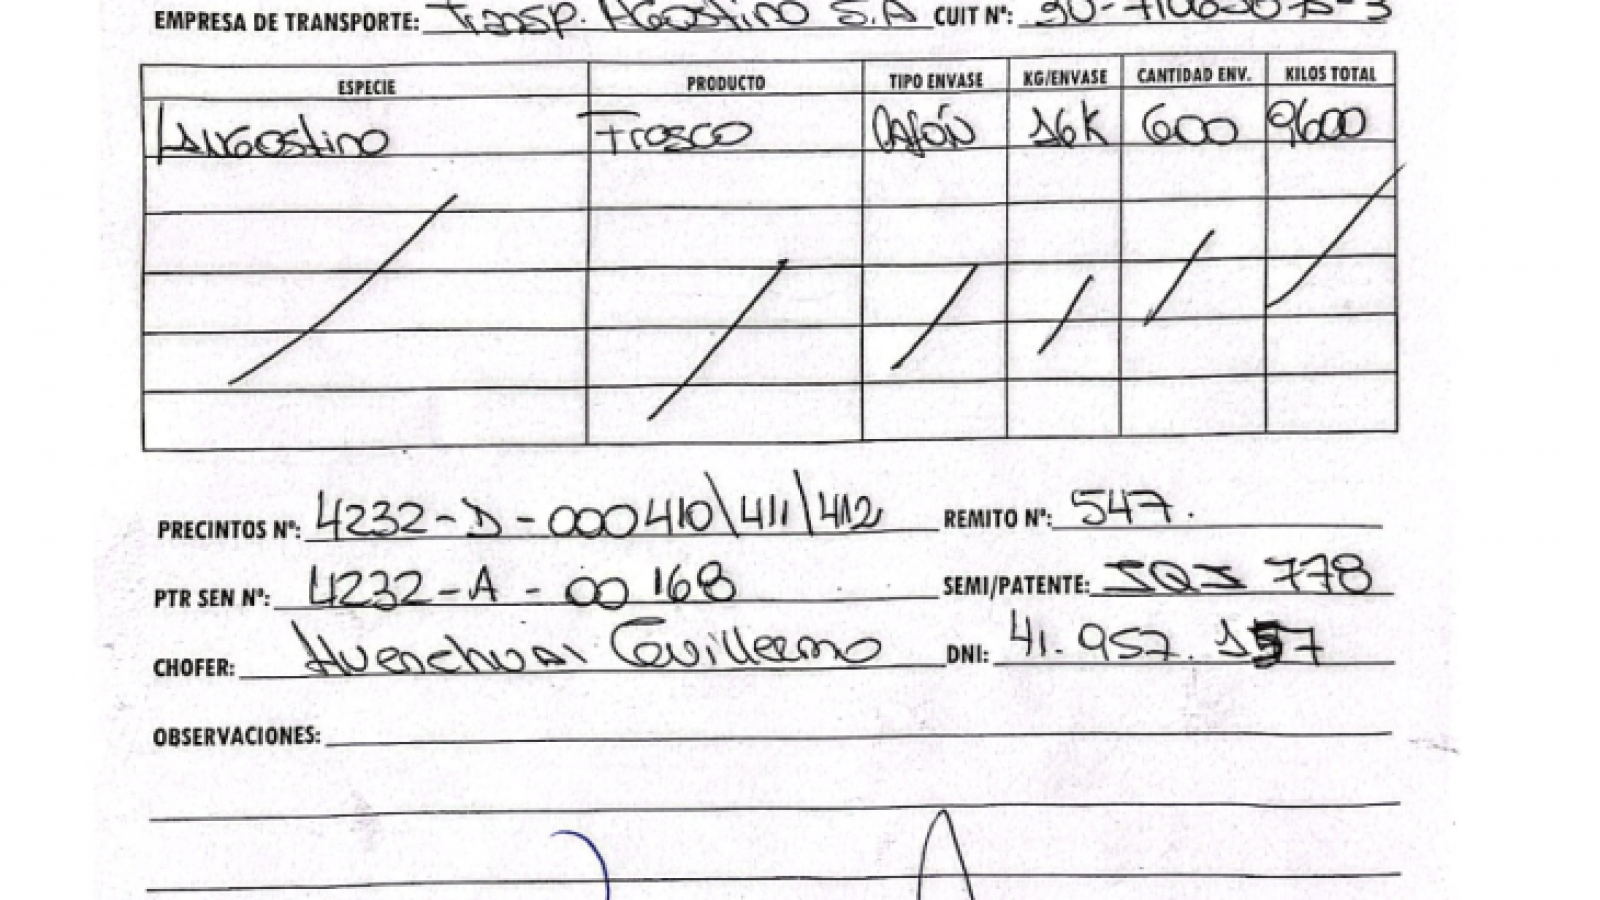 EMPRESA DE TRANSPORTE: Transp. Agostino S.A CUIT Nº:
ESPECIE PRODUCTO TIPO ENVASE KG/ENVASE CANTIDAD ENV. KILOS TOTAL
LANGostino Fresco CAJÓN 16K 600 9600
PRECINTOS Nº: 4232-D-000410\411\412 REMITO Nº: 547.
PTR SEN Nº: 4232-A-00168 SEMI/PATENTE: 778
CHOFER: Guillermo DNI: 41.957.157
OBSERVACIONES: